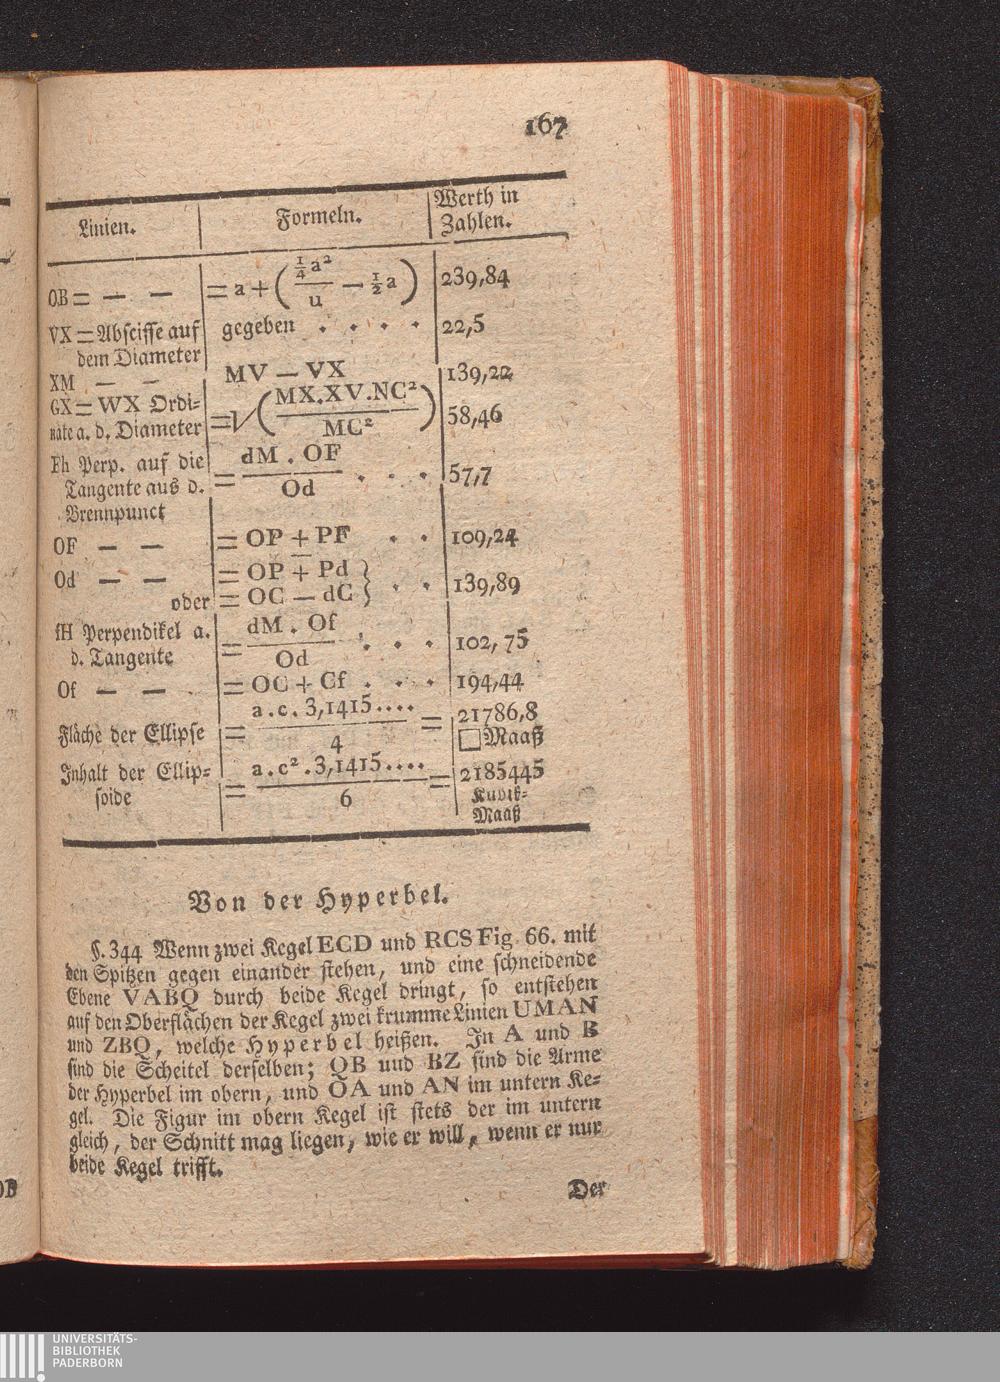 167
Linien. Formeln. Werth in Zahlen.
OB = — — = a + ( ¼a² / u — ½a ) 239,84
VX = Abscisse auf gegeben . . . . 22,5
dem Diameter
XM — — MV — VX 139,22
GX = WX Ordi= = √ ( MX.XV.NC² / MC² ) 58,46
nate a. d. Diameter
Fh Perp. auf die = dM . OF / Od . . . 57,7
Tangente aus d.
Brennpunct
OF — — = OP + PF . . 109,24
Od — — = OP + Pd } . . 139,89
oder = OC — dC }
fH Perpendikel a. = dM . Of / Od . . . 102,75
d. Tangente
Of — — = OC + Cf . . . 194,44
Fläche der Ellipse = a.c. 3,1415.... / 4 = 21786,8
□ Maaß
Inhalt der Ellip= = a.c².3,1415.... / 6 = 2185445
soide Kubik=
Maaß
Von der Hyperbel.
§. 344 Wenn zwei Kegel ECD und RCS Fig. 66. mit
den Spitzen gegen einander stehen, und eine schneidende
Ebene VABQ durch beide Kegel dringt, so entstehen
auf den Oberflächen der Kegel zwei krumme Linien UMAN
und ZBQ, welche Hyperbel heißen. In A und B
sind die Scheitel derselben; QB uud BZ sind die Arme
der Hyperbel im obern, und OA und AN im untern Ke=
gel. Die Figur im obern Kegel ist stets der im untern
gleich, der Schnitt mag liegen, wie er will, wenn er nur
beide Kegel trifft.
Der
UNIVERSITÄTS-
BIBLIOTHEK
PADERBORN